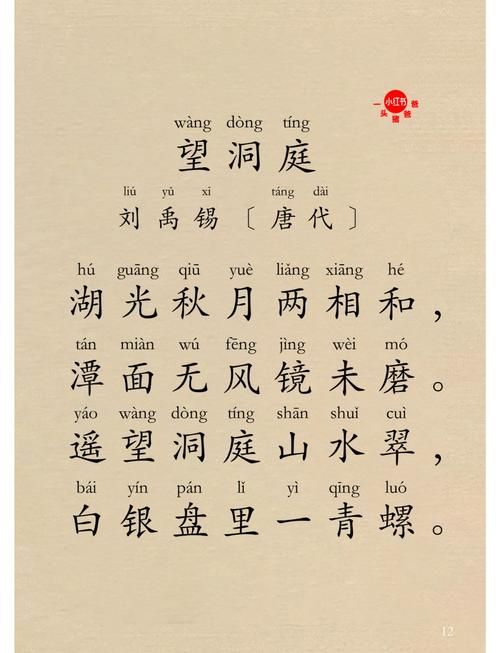 小红书
一头猪爸爸
wàng dòng tíng
望洞庭
liú yǔ xī táng dài
刘禹锡〔唐代〕
hú guāng qiū yuè liǎng xiāng hé
湖光秋月两相和，
tán miàn wú fēng jìng wèi mó
潭面无风镜未磨。
yáo wàng dòng tíng shān shuǐ cuì
遥望洞庭山水翠，
bái yín pán lǐ yì qīng luó
白银盘里一青螺。
12